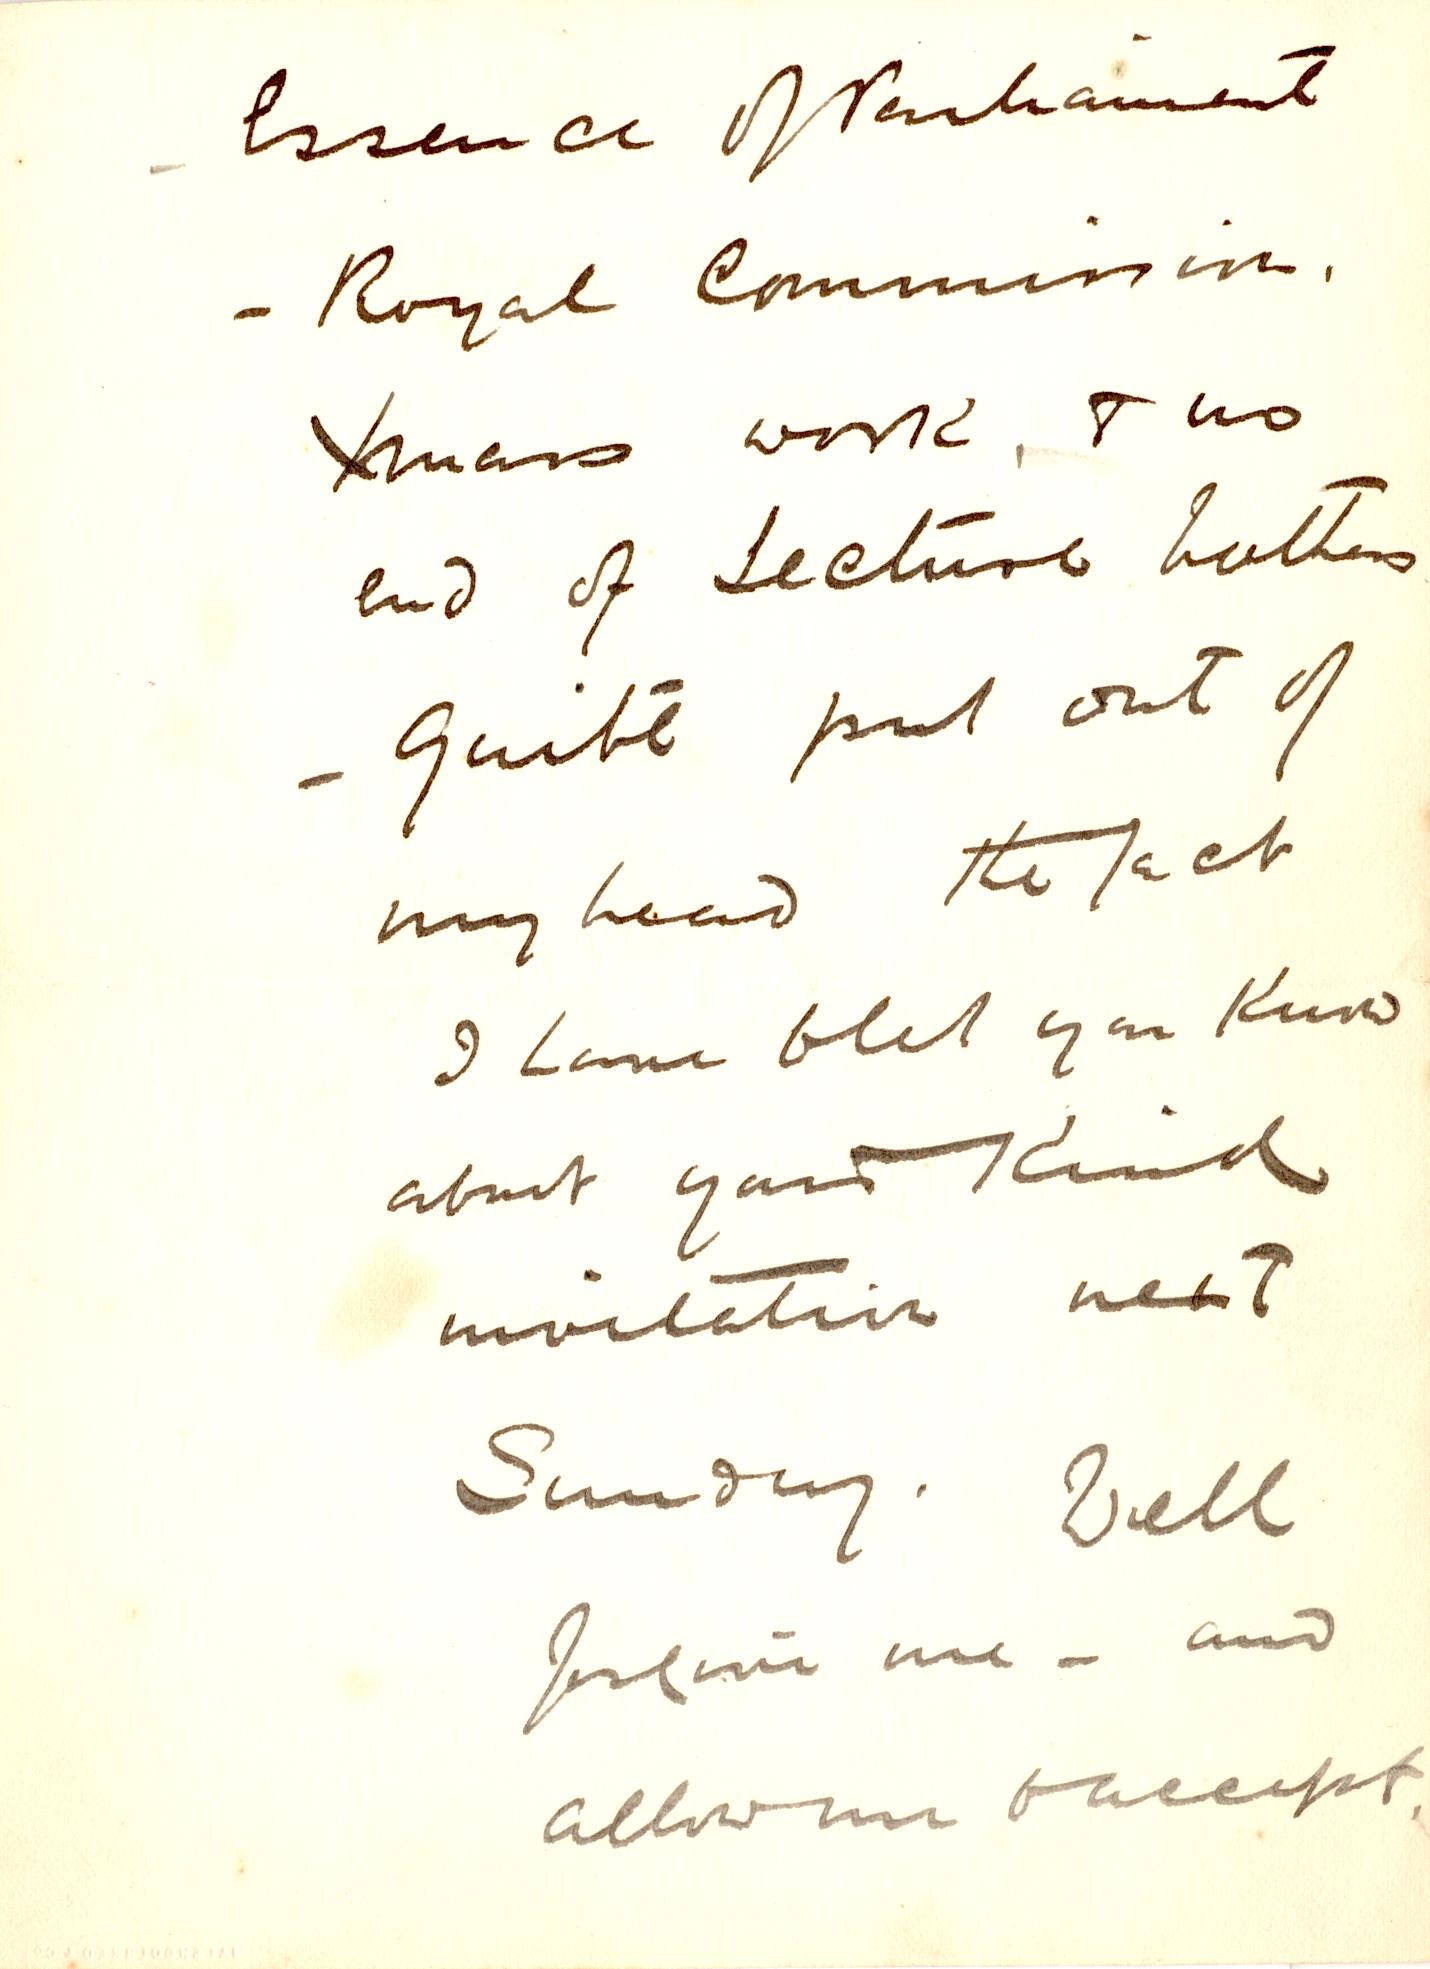 - Essence of Parliament
- Royal Commission.
Xmas work, & no
end of Lecture bothers
- Quite put out of
my head the fact
I have to let you know
about your kind
invitation next
Sunday. Well
forgive me - and
allow me to accept.